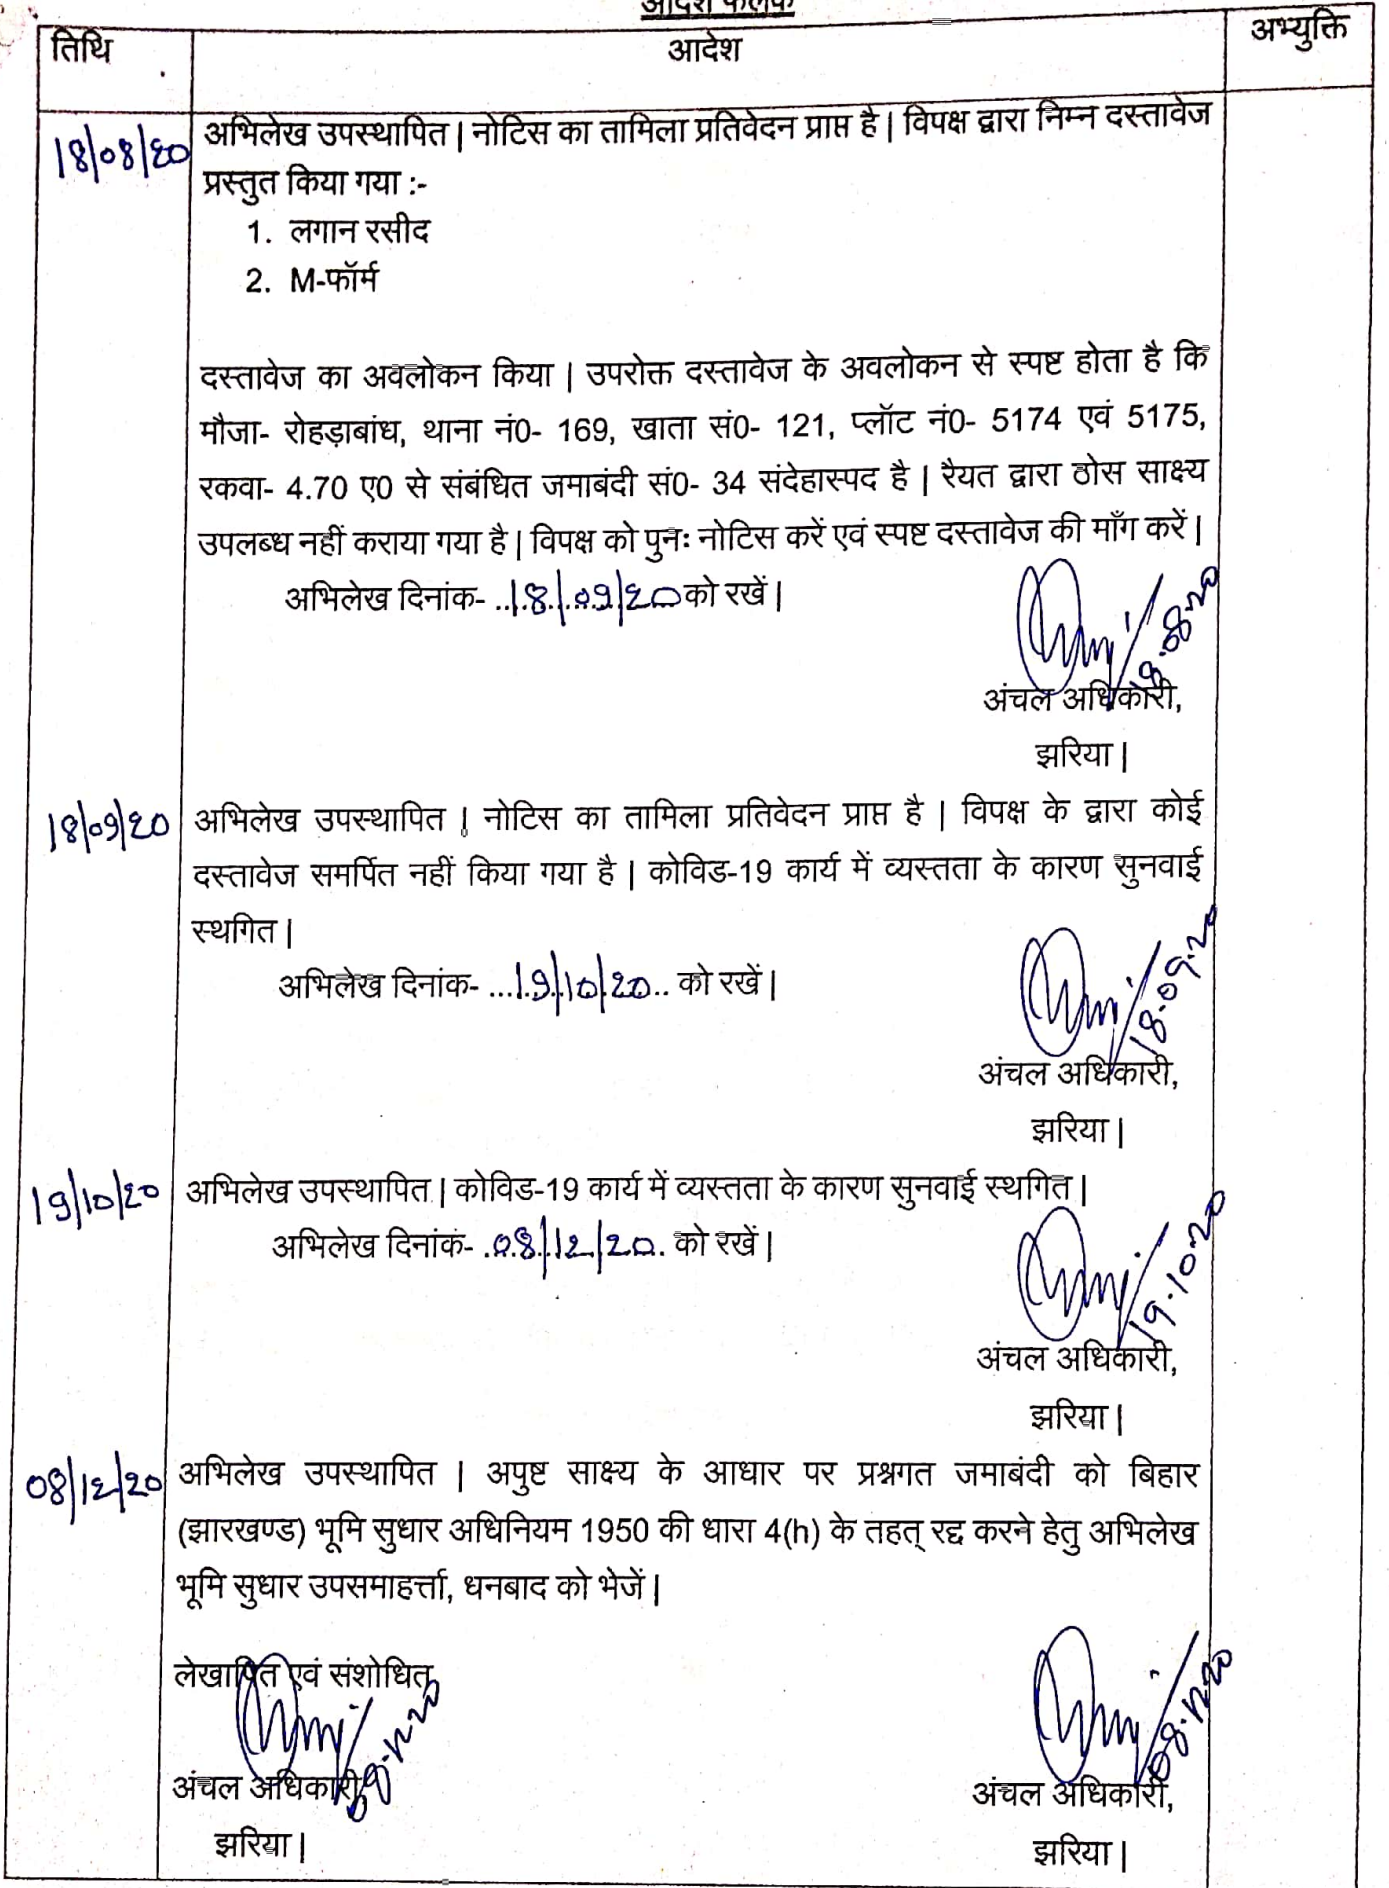 आदेश फलक
तिथि
आदेश
अभ्युक्ति
18/08/20
अभिलेख उपस्थापित | नोटिस का तामिला प्रतिवेदन प्राप्त है | विपक्ष द्वारा निम्न दस्तावेज
प्रस्तुत किया गया :-
1. लगान रसीद
2. M-फॉर्म
दस्तावेज का अवलोकन किया | उपरोक्त दस्तावेज के अवलोकन से स्पष्ट होता है कि
मौजा- रोहड़ाबांध, थाना नं0- 169, खाता सं0- 121, प्लॉट नं0- 5174 एवं 5175,
रकवा- 4.70 ए0 से संबंधित जमाबंदी सं0- 34 संदेहास्पद है | रैयत द्वारा ठोस साक्ष्य
उपलब्ध नहीं कराया गया है | विपक्ष को पुनः नोटिस करें एवं स्पष्ट दस्तावेज की माँग करें |
अभिलेख दिनांक- ..18/09/20 को रखें |
18.08.20
अंचल अधिकारी,
झरिया |
18/09/20
अभिलेख उपस्थापित | नोटिस का तामिला प्रतिवेदन प्राप्त है | विपक्ष के द्वारा कोई
दस्तावेज समर्पित नहीं किया गया है | कोविड-19 कार्य में व्यस्तता के कारण सुनवाई
स्थगित |
अभिलेख दिनांक- ...19/10/20.. को रखें |
18.09.20
अंचल अधिकारी,
झरिया |
19/10/20
अभिलेख उपस्थापित | कोविड-19 कार्य में व्यस्तता के कारण सुनवाई स्थगित |
अभिलेख दिनांक- .08/12/20. को रखें |
19.10.20
अंचल अधिकारी,
झरिया |
08/12/20
अभिलेख उपस्थापित | अपुष्ट साक्ष्य के आधार पर प्रश्नगत जमाबंदी को बिहार
(झारखण्ड) भूमि सुधार अधिनियम 1950 की धारा 4(h) के तहत् रद्द करने हेतु अभिलेख
भूमि सुधार उपसमाहर्त्ता, धनबाद को भेजें |
लेखापित एवं संशोधित
08.12.20
08.12.20
अंचल अधिकारी,
अंचल अधिकारी,
झरिया |
झरिया |